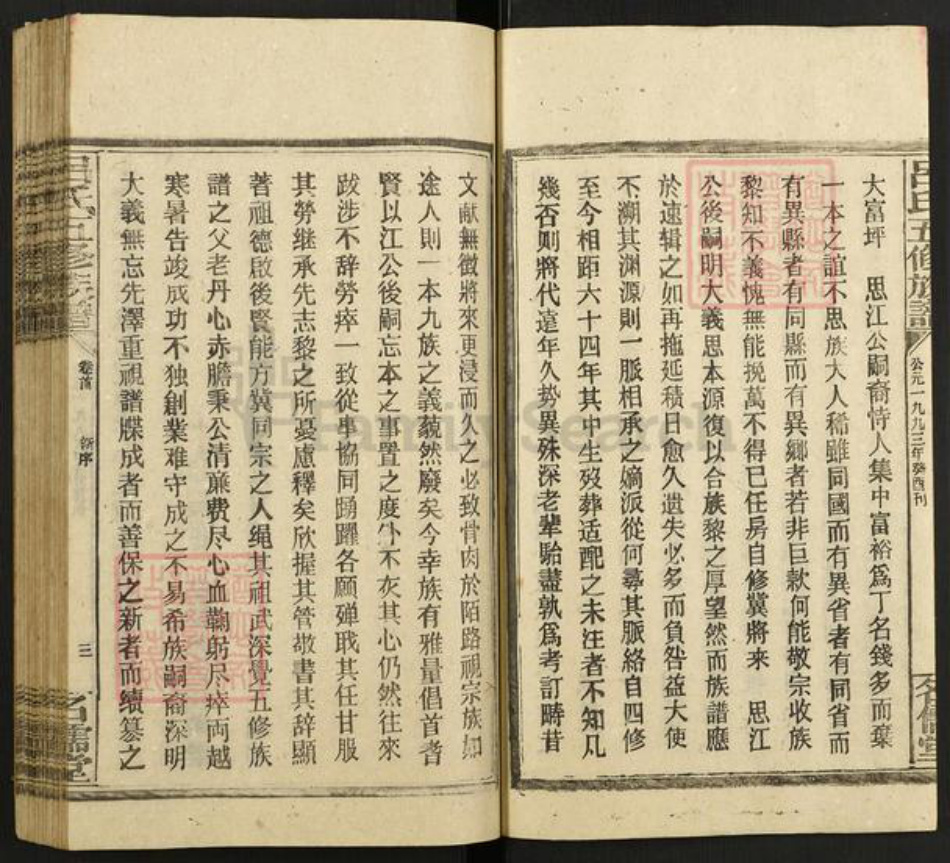 呂氏五修族譜
公元一九九三年癸酉刊
名儒堂
大富坪　思江公嗣裔恃人集中富裕爲丁名錢多而棄
一本之誼不思族大人稀雖同國而有異省者有同省而
有異縣者有同縣而有異鄉者若非巨款何能敬宗收族
黎知不義愧無能挽萬不得已任房自修冀將來　思江
公後嗣明大義思本源復以合族黎之厚望然而族譜應
於速辑之如再拖延積日愈久遗失必多而負咎益大使
不溯其渊源則一脈相承之嫡派從何尋其脈絡自四修
至今相距六十四年其中生歿葬适配之未注者不知凡
幾否则將代遠年久势異殊深老輩駘盡孰爲考訂時昔
文献無徵將來更浸而久之必致骨肉於陌路視宗族如
途人則一本九族之義藐然廢矣今幸族有雅量倡首耆
賢以江公後嗣忘本之事置之度外不灰其心仍然往來
跋涉不辞勞瘁一致從事協同踴躍各願殚戢其任甘服
其勞继承先志黎之所憂慮釋矣欣握其管敬書其辞顯
著祖德啟後賢能方冀同宗之人绳其祖武深覺五修族
譜之父老丹心赤膽秉公清亷费尽心血鞠躬尽瘁両越
寒暑告竣成功不独創業难守成之不易希族嗣裔深明
大義無忘先澤重視譜牒成者而善保之新者而續篡之
呂氏五修族譜
卷首
新序
三
名儒堂
FamilySearch